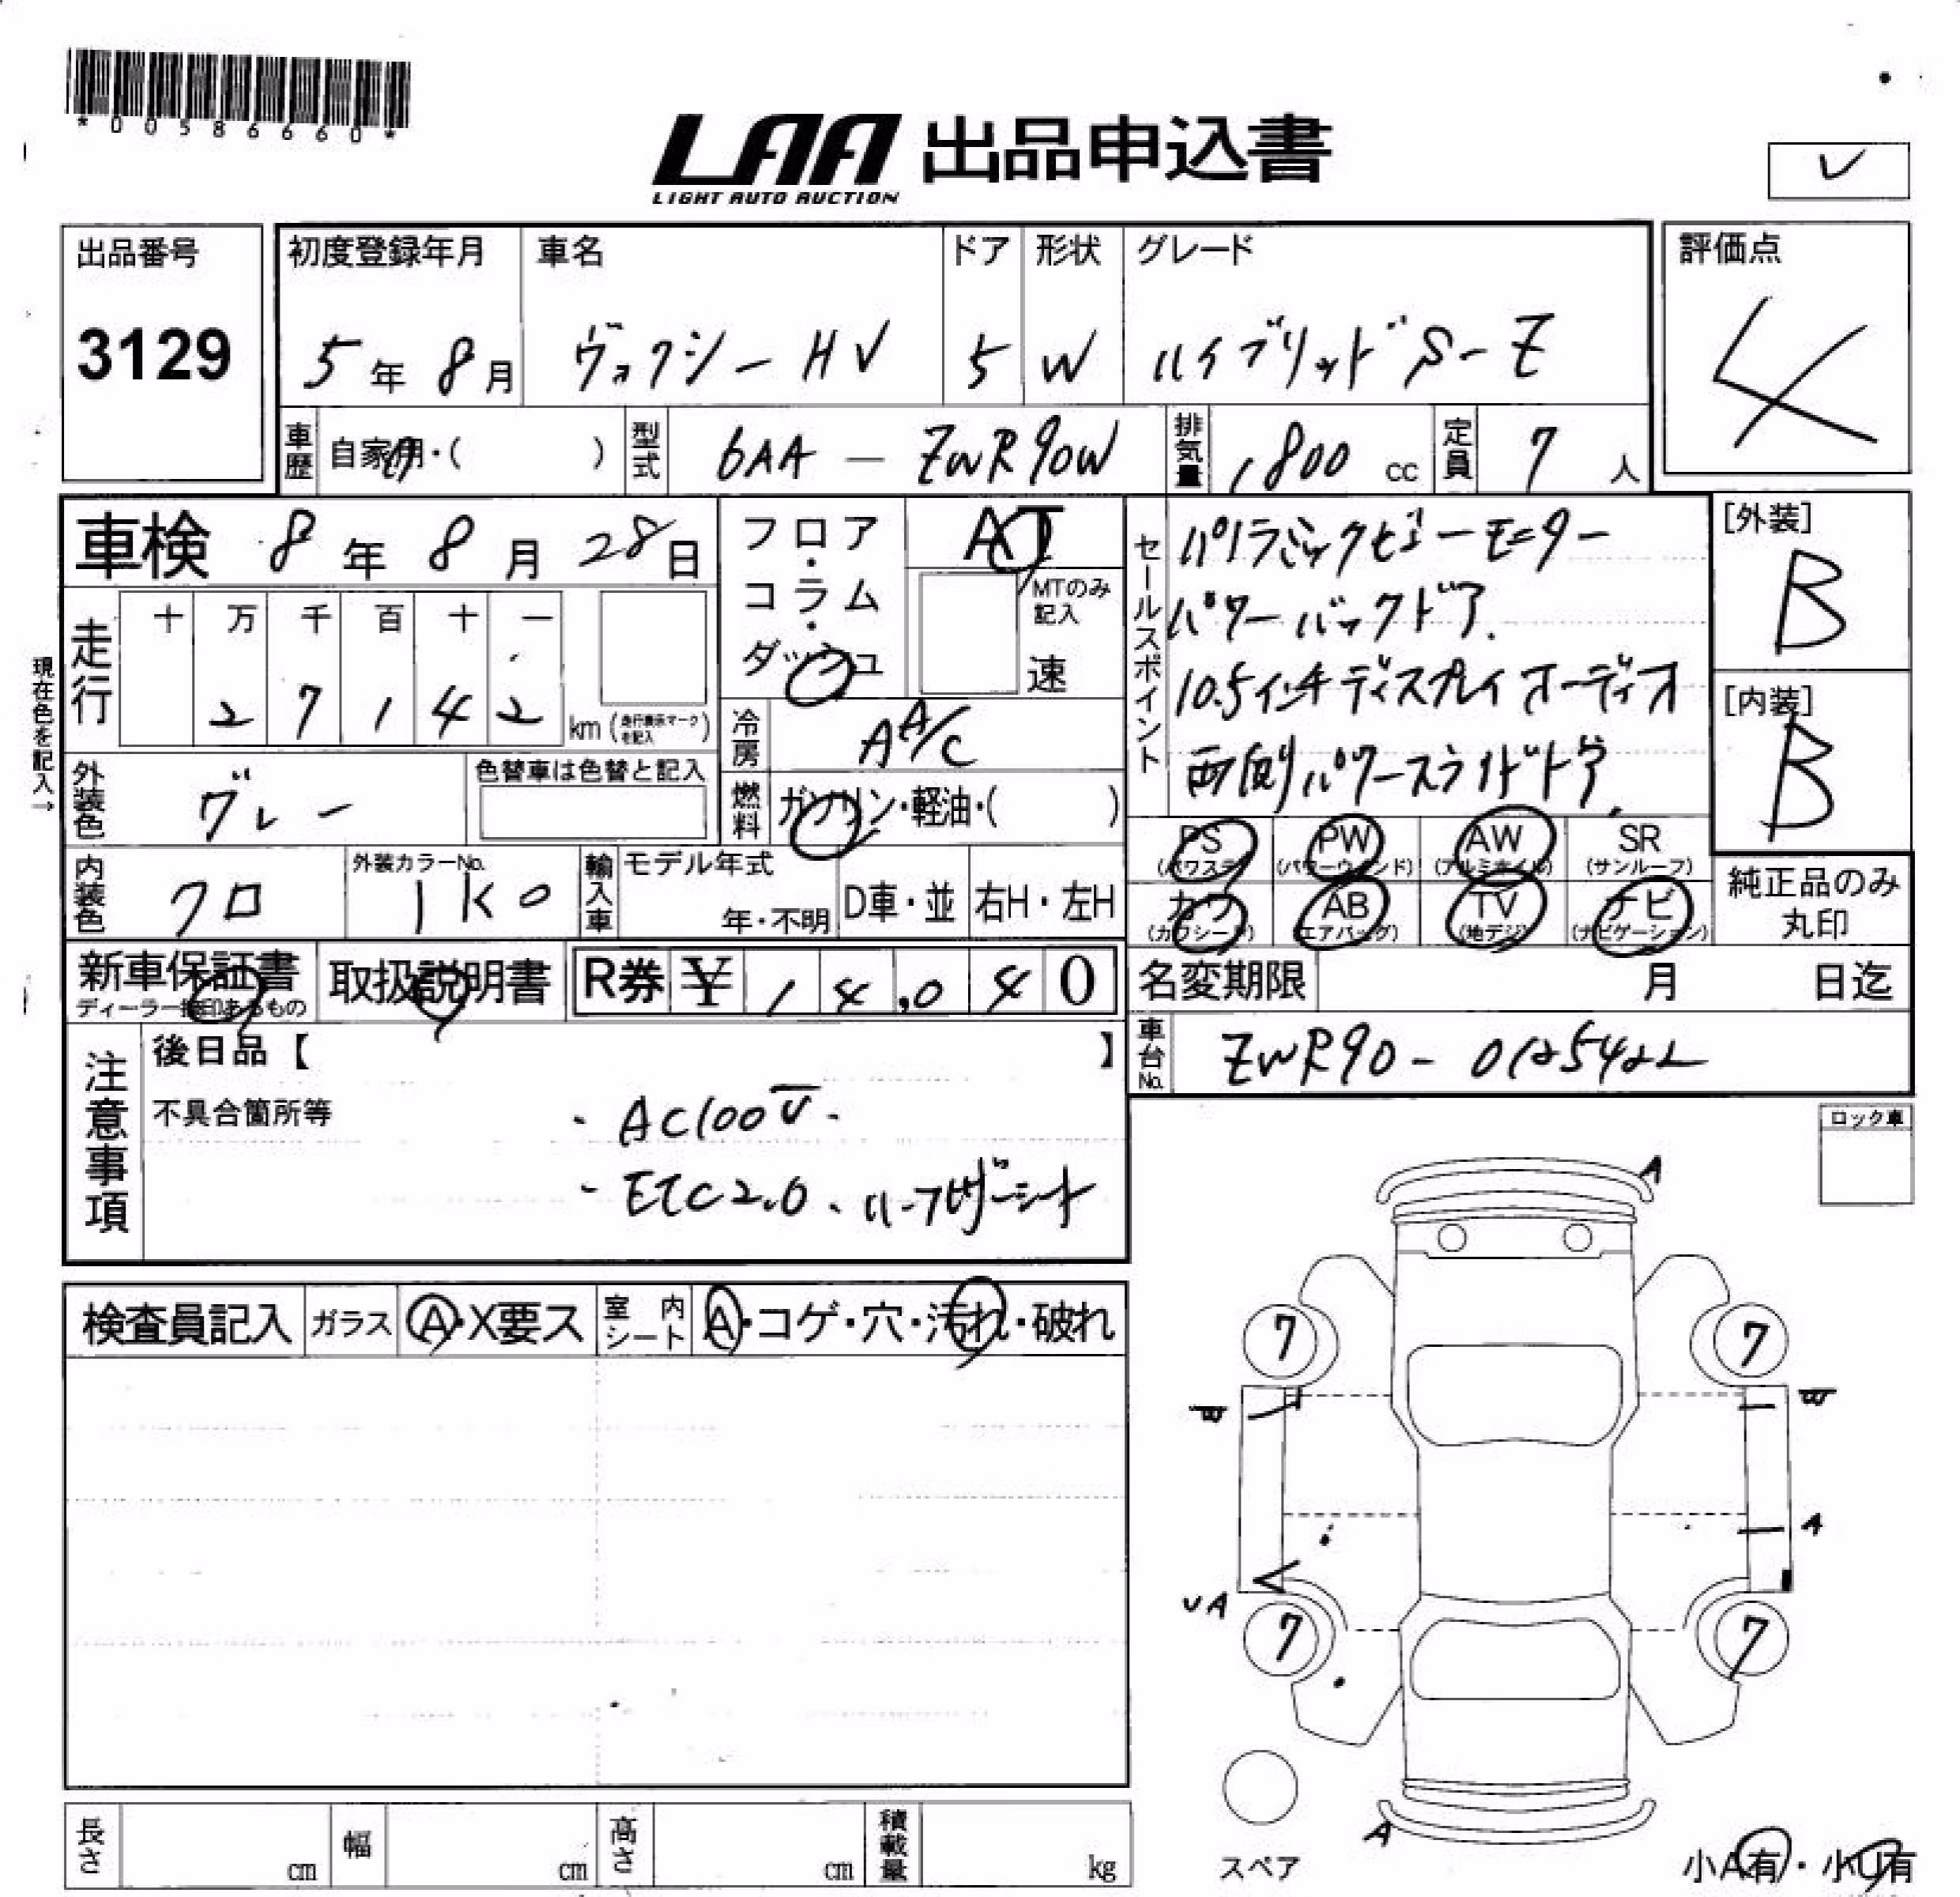 *00586660*
LAA 出品申込書
LIGHT AUTO AUCTION
レ
出品番号
3129
初度登録年月
5年8月
車名
ヴォクシーHV
ドア
5
形状
W
グレード
ハイブリッド S-Z
評価点
4
車歴 自家用・( )
型式 6AA-ZWR90W
排気量 1800 cc
定員 7人
車検 8年8月28日
現在色を記入→
走行 十 万 千 百 十 一
2 7 1 4 2
km (走行表示マークを記入)
フロア・コラム・ダッシュ
AT
MTのみ記入
速
冷房 AA/C
燃料 ガソリン・軽油・( )
セールスポイント
パノラミックビューモニター
パワーバックドア.
10.5インチディスプレイオーディオ
両側パワースライドドア
[外装]
B
[内装]
B
外装色 グレー
色替車は色替と記入
内装色 クロ
外装カラーNo.
1K0
輸入車 モデル年式
年・不明
D車・並
右H・左H
PS (パワステ)
PW (パワーウインド)
AW (アルミホイル)
SR (サンルーフ)
カワ (カワシート)
AB (エアバッグ)
TV (地デジ)
ナビ (ナビゲーション)
純正品のみ
丸印
新車保証書
ディーラー捺印あるもの
取扱説明書
R券 ¥ 14,040
名変期限 月 日迄
車台No. ZWR90-
注意事項
後日品【 】
不具合箇所等
・AC100V.
・ETC2.0、ハーフレザーシート
ロック車
検査員記入
ガラス A・X要ス
室内シート A・コゲ・穴・汚れ・破れ
A
7 7
W W
A
UA
7 7
A
スペア
小A有・小U有
長さ cm
幅 cm
高さ cm
積載量 kg